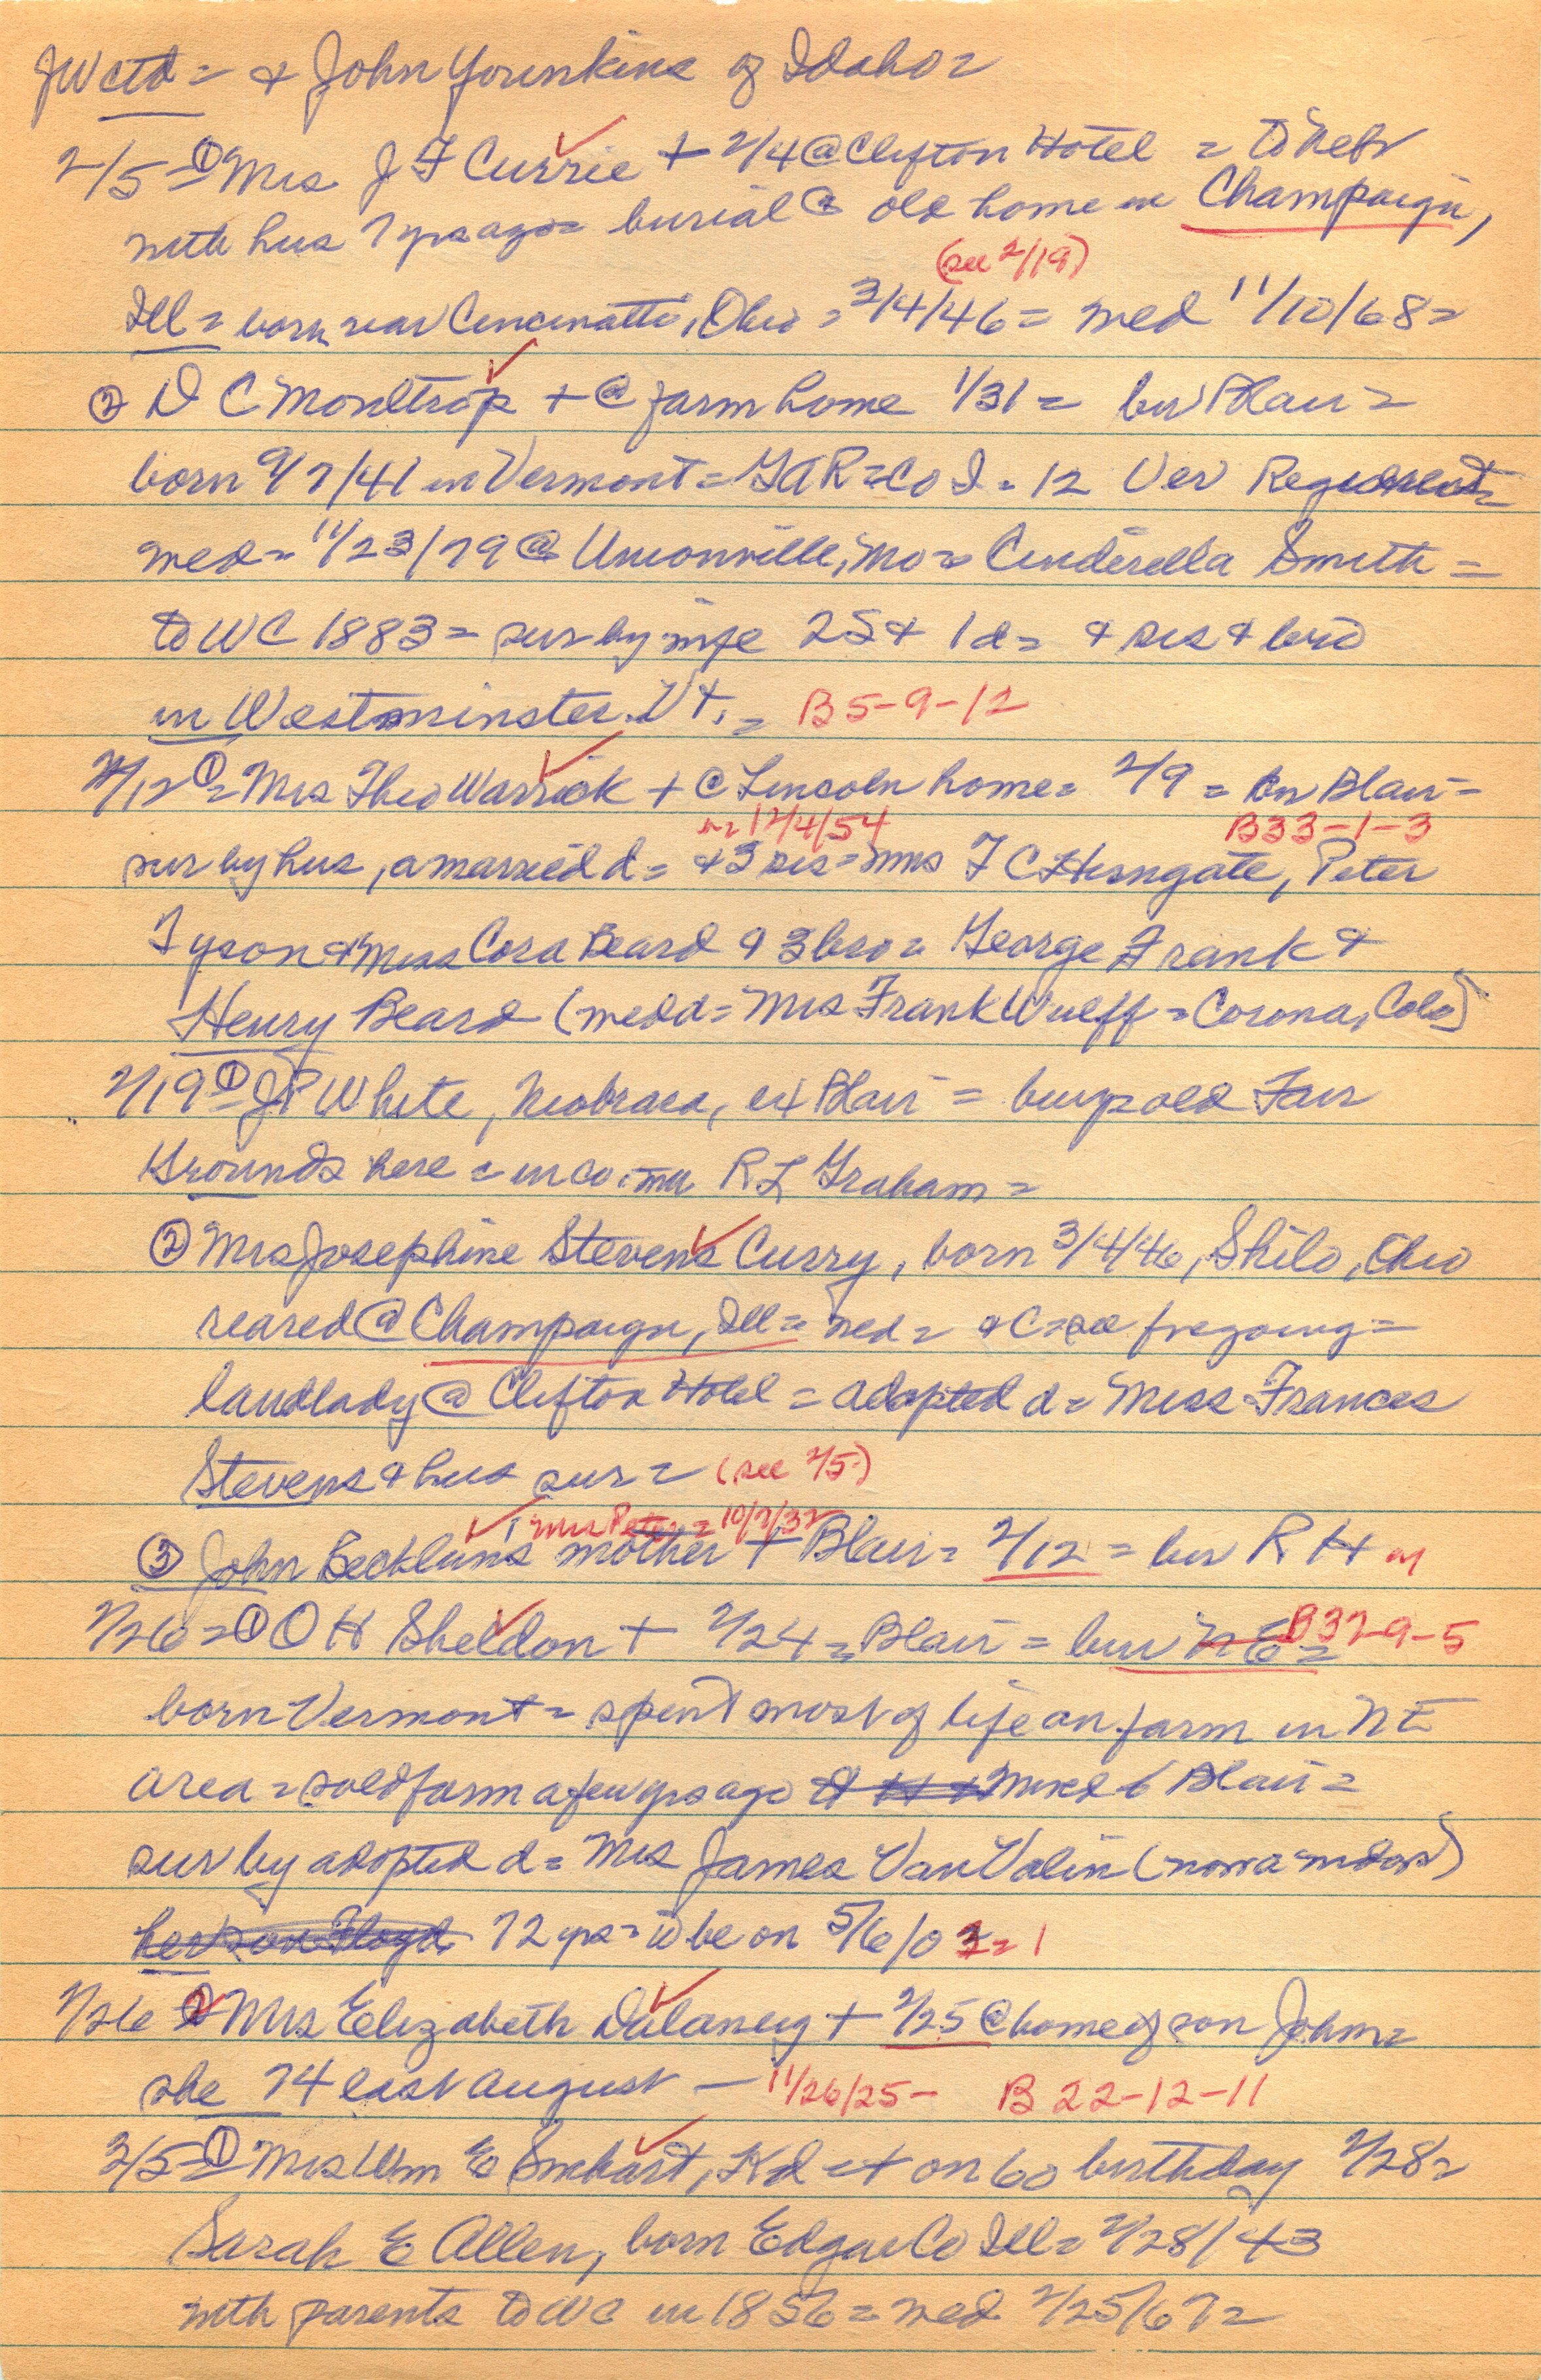 JW ctd = & John Younkins of Idaho =
2/5 = ① Mrs J F Currie + 2/4 @ Clifton Hotel = to Nebr
with hus 7 yrs ago = burial @ old home in Champaign,
(see 2/19)
Ill = born near Cincinatti, Ohio = 3/4/46 = med 11/10/68 =
② D C Monttrop + @ farm home 1/31 = bur Blair =
born 9/7/41 in Vermont = GAR = Co I - 12 Ver Regiment =
med = 11/23/79 @ Unionville, Mo = Cinderella Smith =
to WC 1883 = sur by wife 2S & 1d = & sis & bro
in Westminster Vt. = B5-9-12
2/12 ① = Mrs Theo Warrick + @ Lincoln home = 2/9 = bur Blair =
12/4/54 B33-1-3
sur by hus, a married d = & 3 sis = Mrs F C Hungate, Peter
Tyson & Miss Cora Beard & 3 bro = George Frank &
Henry Beard (med d = Mrs Frank Wulff = Corona, Colo)
2/19 ① = J P White, Niobrara, ex Blair = buys old Fair
Grounds here = in co. R L Graham =
② Mrs Josephine Stevens Curry, born 3/4/46, Shilo, Ohio
reared @ Champaign, Ill = med = & C = foregoing =
landlady @ Clifton Hotel = adopted d = Miss Frances
Stevens & hus sur = (see 2/5)
Mrs Peter = 10/7/32
③ John Becklun's mother + Blair = 2/12 = bur R H
2/26 = ① O H Sheldon + 2/24 = Blair = bur N E = B32-9-5
born Vermont = spent most of life on farm in N E
area = sold farm a few yrs ago & moved to Blair =
sur by adopted d = Mrs James Van Valin (now a widow)
her son Floyd 72 yrs = to be on 5/6/03 = 1
2/26 ② Mrs Elizabeth Dulaney + 2/25 @ home of son John =
she 74 last August — 11/26/25 - B 22-12-11
3/5 = ① Mrs Wm E Swihart, Kd = + on 60 birthday 2/28 =
Sarah E Allen, born Edgar Co Ill = 2/28/43
with parents to WC in 1856 = med 2/25/67 =